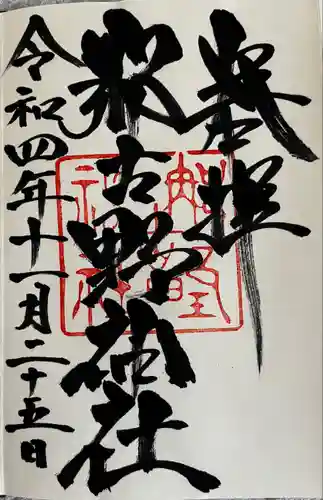 奉拝
那古野神社
令和四年十一月二十五日